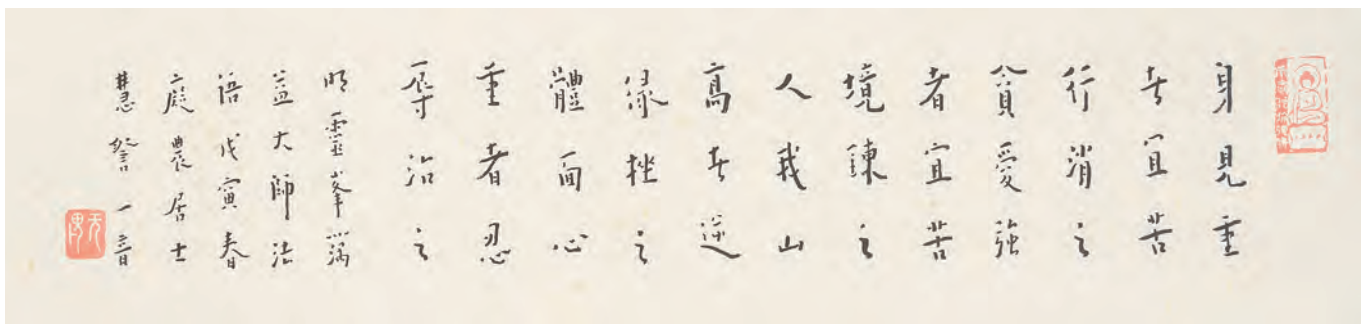 身見重
者宜苦
行消之
貪愛強
者宜苦
境鍊之
人我山
高者逆
緣挫之
體面心
重者忍
辱治之
明靈峯蕅
益大師法
語戊寅春
農居士
慧一音
无畏